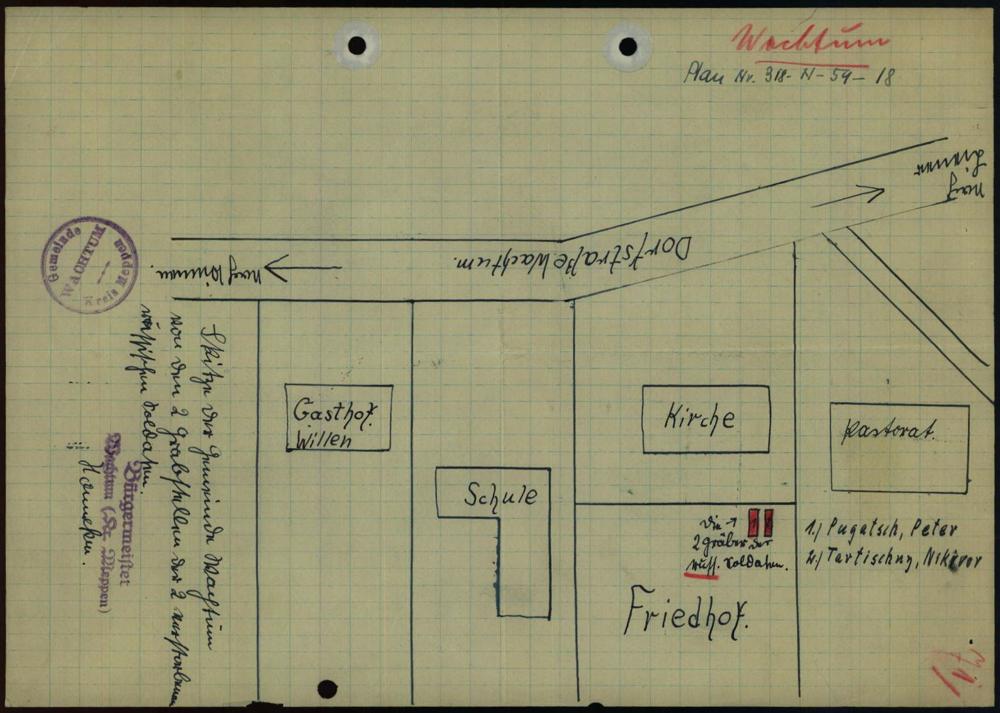 Wachtum
Plan Nr. 318-N-59-18
nach
Dorfstraße Wachtum.
nach
Gemeinde
WACHTUM
Kreis Meppen
Skitze der Gemeinde Wachtum
von den 2 Grabstellen der 2 verstorbenen
russischen Soldaten.
Bürgermeister
Wachtum (Kr. Meppen)
Gasthof.
Willen
Schule
Kirche
Pastorat.
Die →
2 Gräber der
russ. Soldaten.
Friedhof.
1.) Pugatsch, Peter
2.) Tartischny, Nikifor